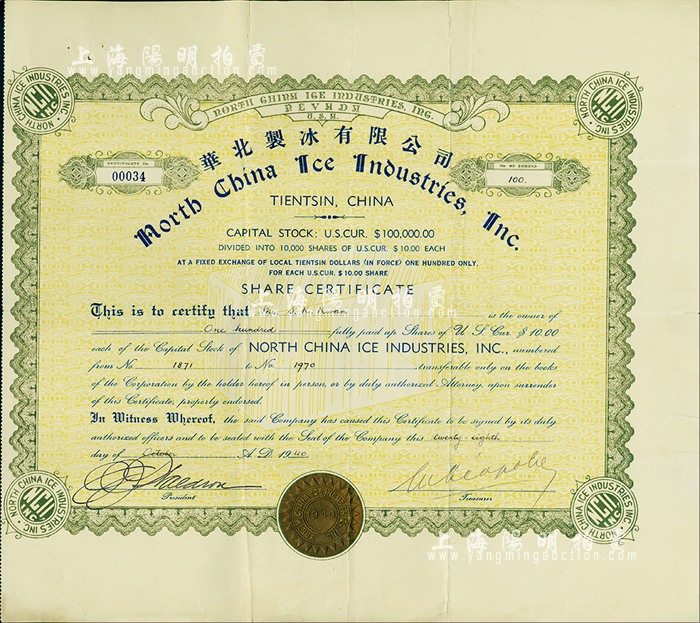 上海陽明拍賣
www.yangmingauction.com
NORTH CHINA ICE INDUSTRIES, INC.
NEVADA
U.S.A.
NORTH CHINA ICE INDUSTRIES INC.
NORTH CHINA ICE INDUSTRIES INC.
華北製冰有限公司
North China Ice Industries, Inc.
00034
No OF SHARES
100.
TIENTSIN, CHINA
CAPITAL STOCK: U.S.CUR. $100,000.00
DIVIDED INTO 10,000 SHARES OF U.S.CUR. $10.00 EACH
AT A FIXED EXCHANGE OF LOCAL TIENTSIN DOLLARS (IN FORCE) ONE HUNDRED ONLY,
FOR EACH U.S.CUR. $10.00 SHARE
SHARE CERTIFICATE
上海陽明拍賣
www.yangmingauction.com
This is to certify that Mr. S. K. Kwan is the owner of
One hundred fully paid up Shares of U.S. Cur. $10.00
each of the Capital Stock of NORTH CHINA ICE INDUSTRIES, INC., numbered
from No 1871 to No. 1970 transferable only on the books
of the Corporation by the holder hereof in person, or by duly authorized Attorney, upon surrender
of this Certificate, properly endorsed.
In Witness Whereof, the said Company has caused this Certificate to be signed by its duly
authorized officers and to be sealed with the Seal of the Company this twenty eighth
day of October A.D. 1940
President
Treasurer
NORTH CHINA ICE INDUSTRIES INC.
NORTH CHINA ICE INDUSTRIES INC.
1940
上海陽明拍賣
www.yangmingauction.com